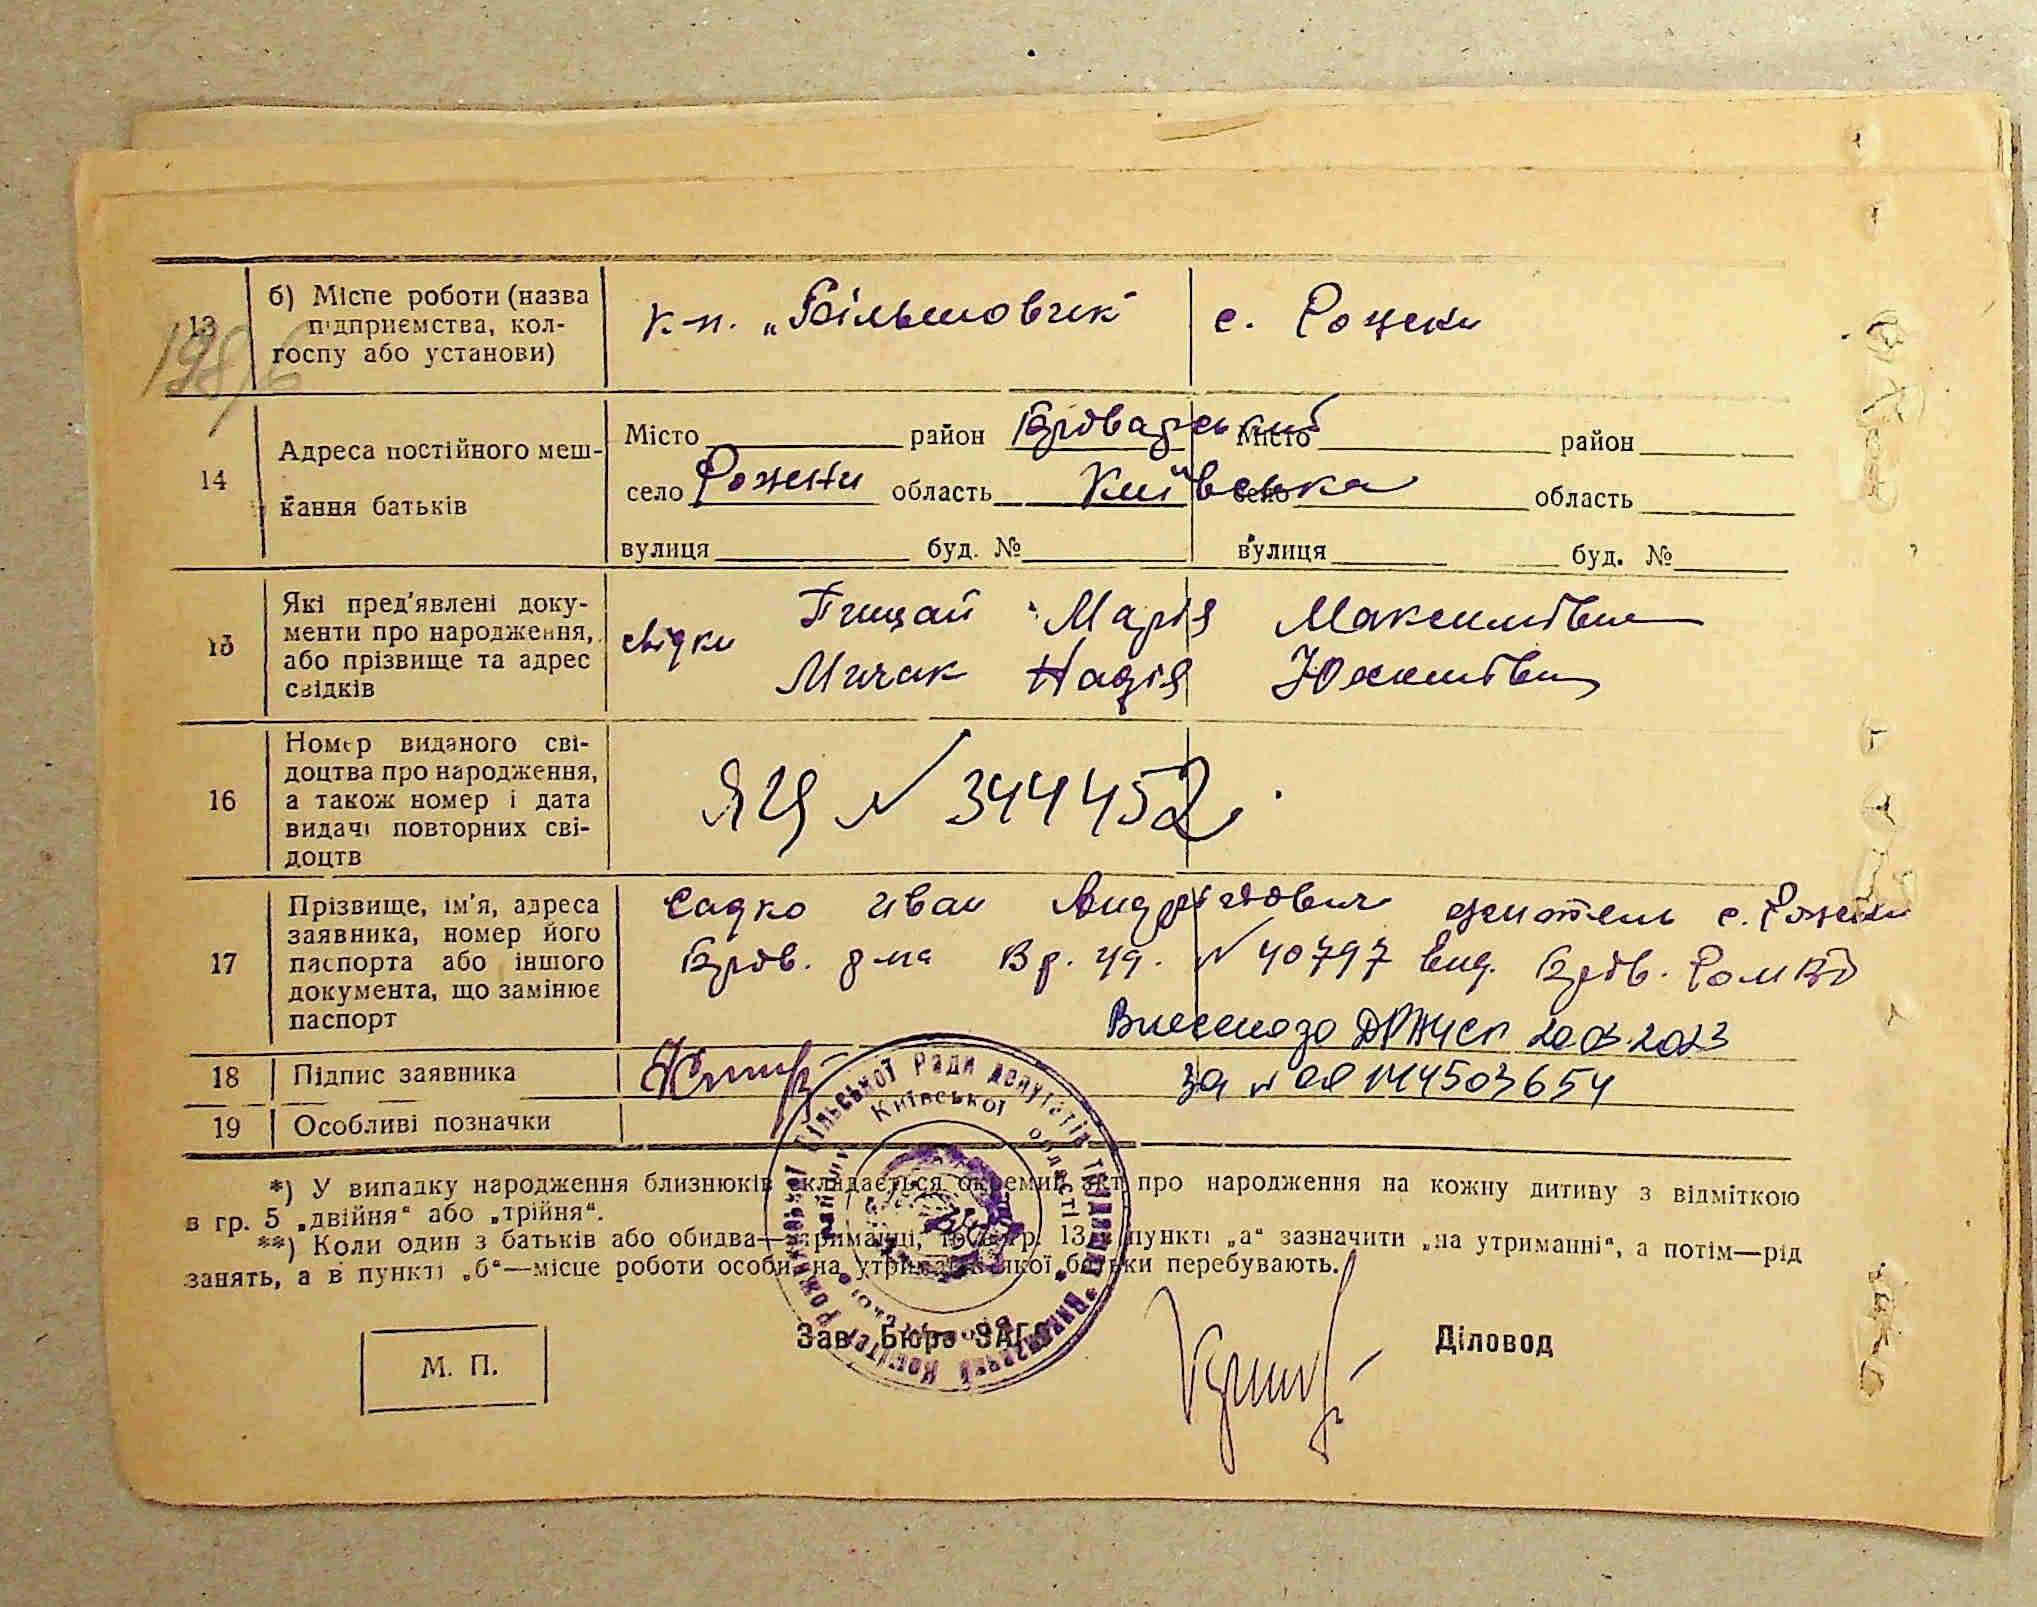 13
б) Місце роботи (назва
підприємства, кол-
госпу або установи)
к-п. „Більшовик"
с. Рожни
198/6
14
Адреса постійного меш-
кання батьків
Місто район Броварський
село Рожни область Київська
вулиця буд. №
Місто район
село область
вулиця буд. №
15
Які пред'явлені доку-
менти про народження,
або прізвище та адрес
свідків
свідки Пицай Марія Максимівна
Мичак Надія Юхимівна
16
Номер виданого сві-
доцтва про народження,
а також номер і дата
видачі повторних сві-
доцтв
ЯЦ № 344452.
17
Прізвище, ім'я, адреса
заявника, номер його
паспорта або іншого
документа, що замінює
паспорт
Садко Иван Андріянович житель с. Рожни
Бров. р-на Вр. уд. № 40797 вид. Бров.
Внесено до ДРАЦСГ 2023
18
Підпис заявника
за № 00144503654
19
Особливі позначки
*) У випадку народження близнюків складається окремий акт про народження на кожну дитину з відміткою
в гр. 5 „двійня“ або „трійня“.
**) Коли один з батьків або обидва—утриманці, то в гр. 13 в пункті „а“ зазначити „на утриманні“, а потім—рід
занять, а в пункті „б“—місце роботи особи, на утриманні якої батьки перебувають.
Зав. Бюро ЗАГС
Діловод
М. П.
сільської Ради депутатів трудящих * Виконавчий Комітет Рожнівської
Київської області